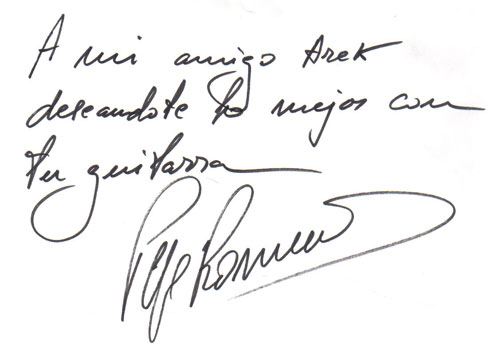 A mi amigo Arek
deseandote lo mejor con
tu guitarra
Pepe Romero